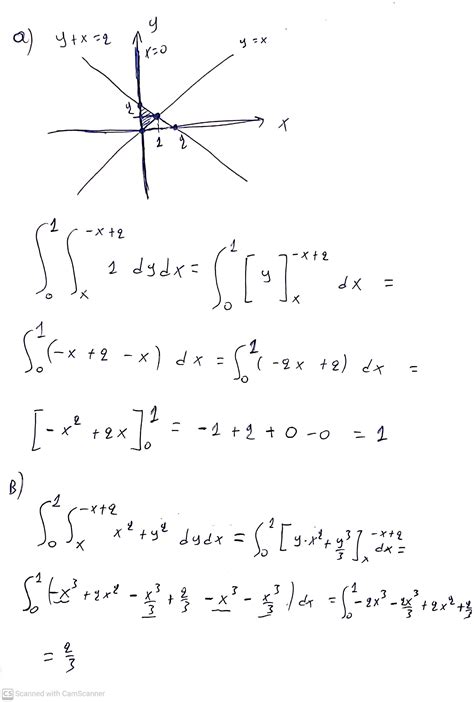 a) y+x=2 y y=x
x=0
2
x
1 2
∫₀¹ ∫ₓ^(-x+2) 1 dydx = ∫₀¹ [y]ₓ^(-x+2) dx =
∫₀¹ (-x+2-x) dx = ∫₀¹ (-2x+2) dx =
[-x²+2x]₀¹ = -1+2+0-0 = 1
B)
∫₀¹ ∫ₓ^(-x+2) x²+y² dydx = ∫₀¹ [y·x²+y³/3]ₓ^(-x+2) dx =
∫₀¹ (-x³+2x²-x³/3+2/3-x³-x³/3) dx = ∫₀¹ -2x³-2x³/3+2x²+2/3
= 2/3
CS Scanned with CamScanner